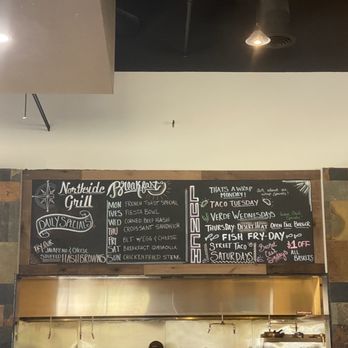 Northside
Grill
DAILY SPECIALS
TRY OUR
JALAPENO & CHEESE
HASHBROWNS
Breakfast
MON FRENCH TOAST SPECIAL
TUES FIESTA BOWL
WED CORNED BEEF HASH
THU CROISSANT SANDWICH
FRI BLT W/EGG & CHEESE
SAT BREAKFAST
SUN CHICKEN FRIED STEAK
LUNCH
THATS A WRAP
MONDAY!
TACO TUESDAY
VERDE WEDNESDAYS
THURSDAY: DESERT HEAT
FISH FRY-DAY
STREET TACO
SATURDAYS
$1 OFF
ALL
BASKETS